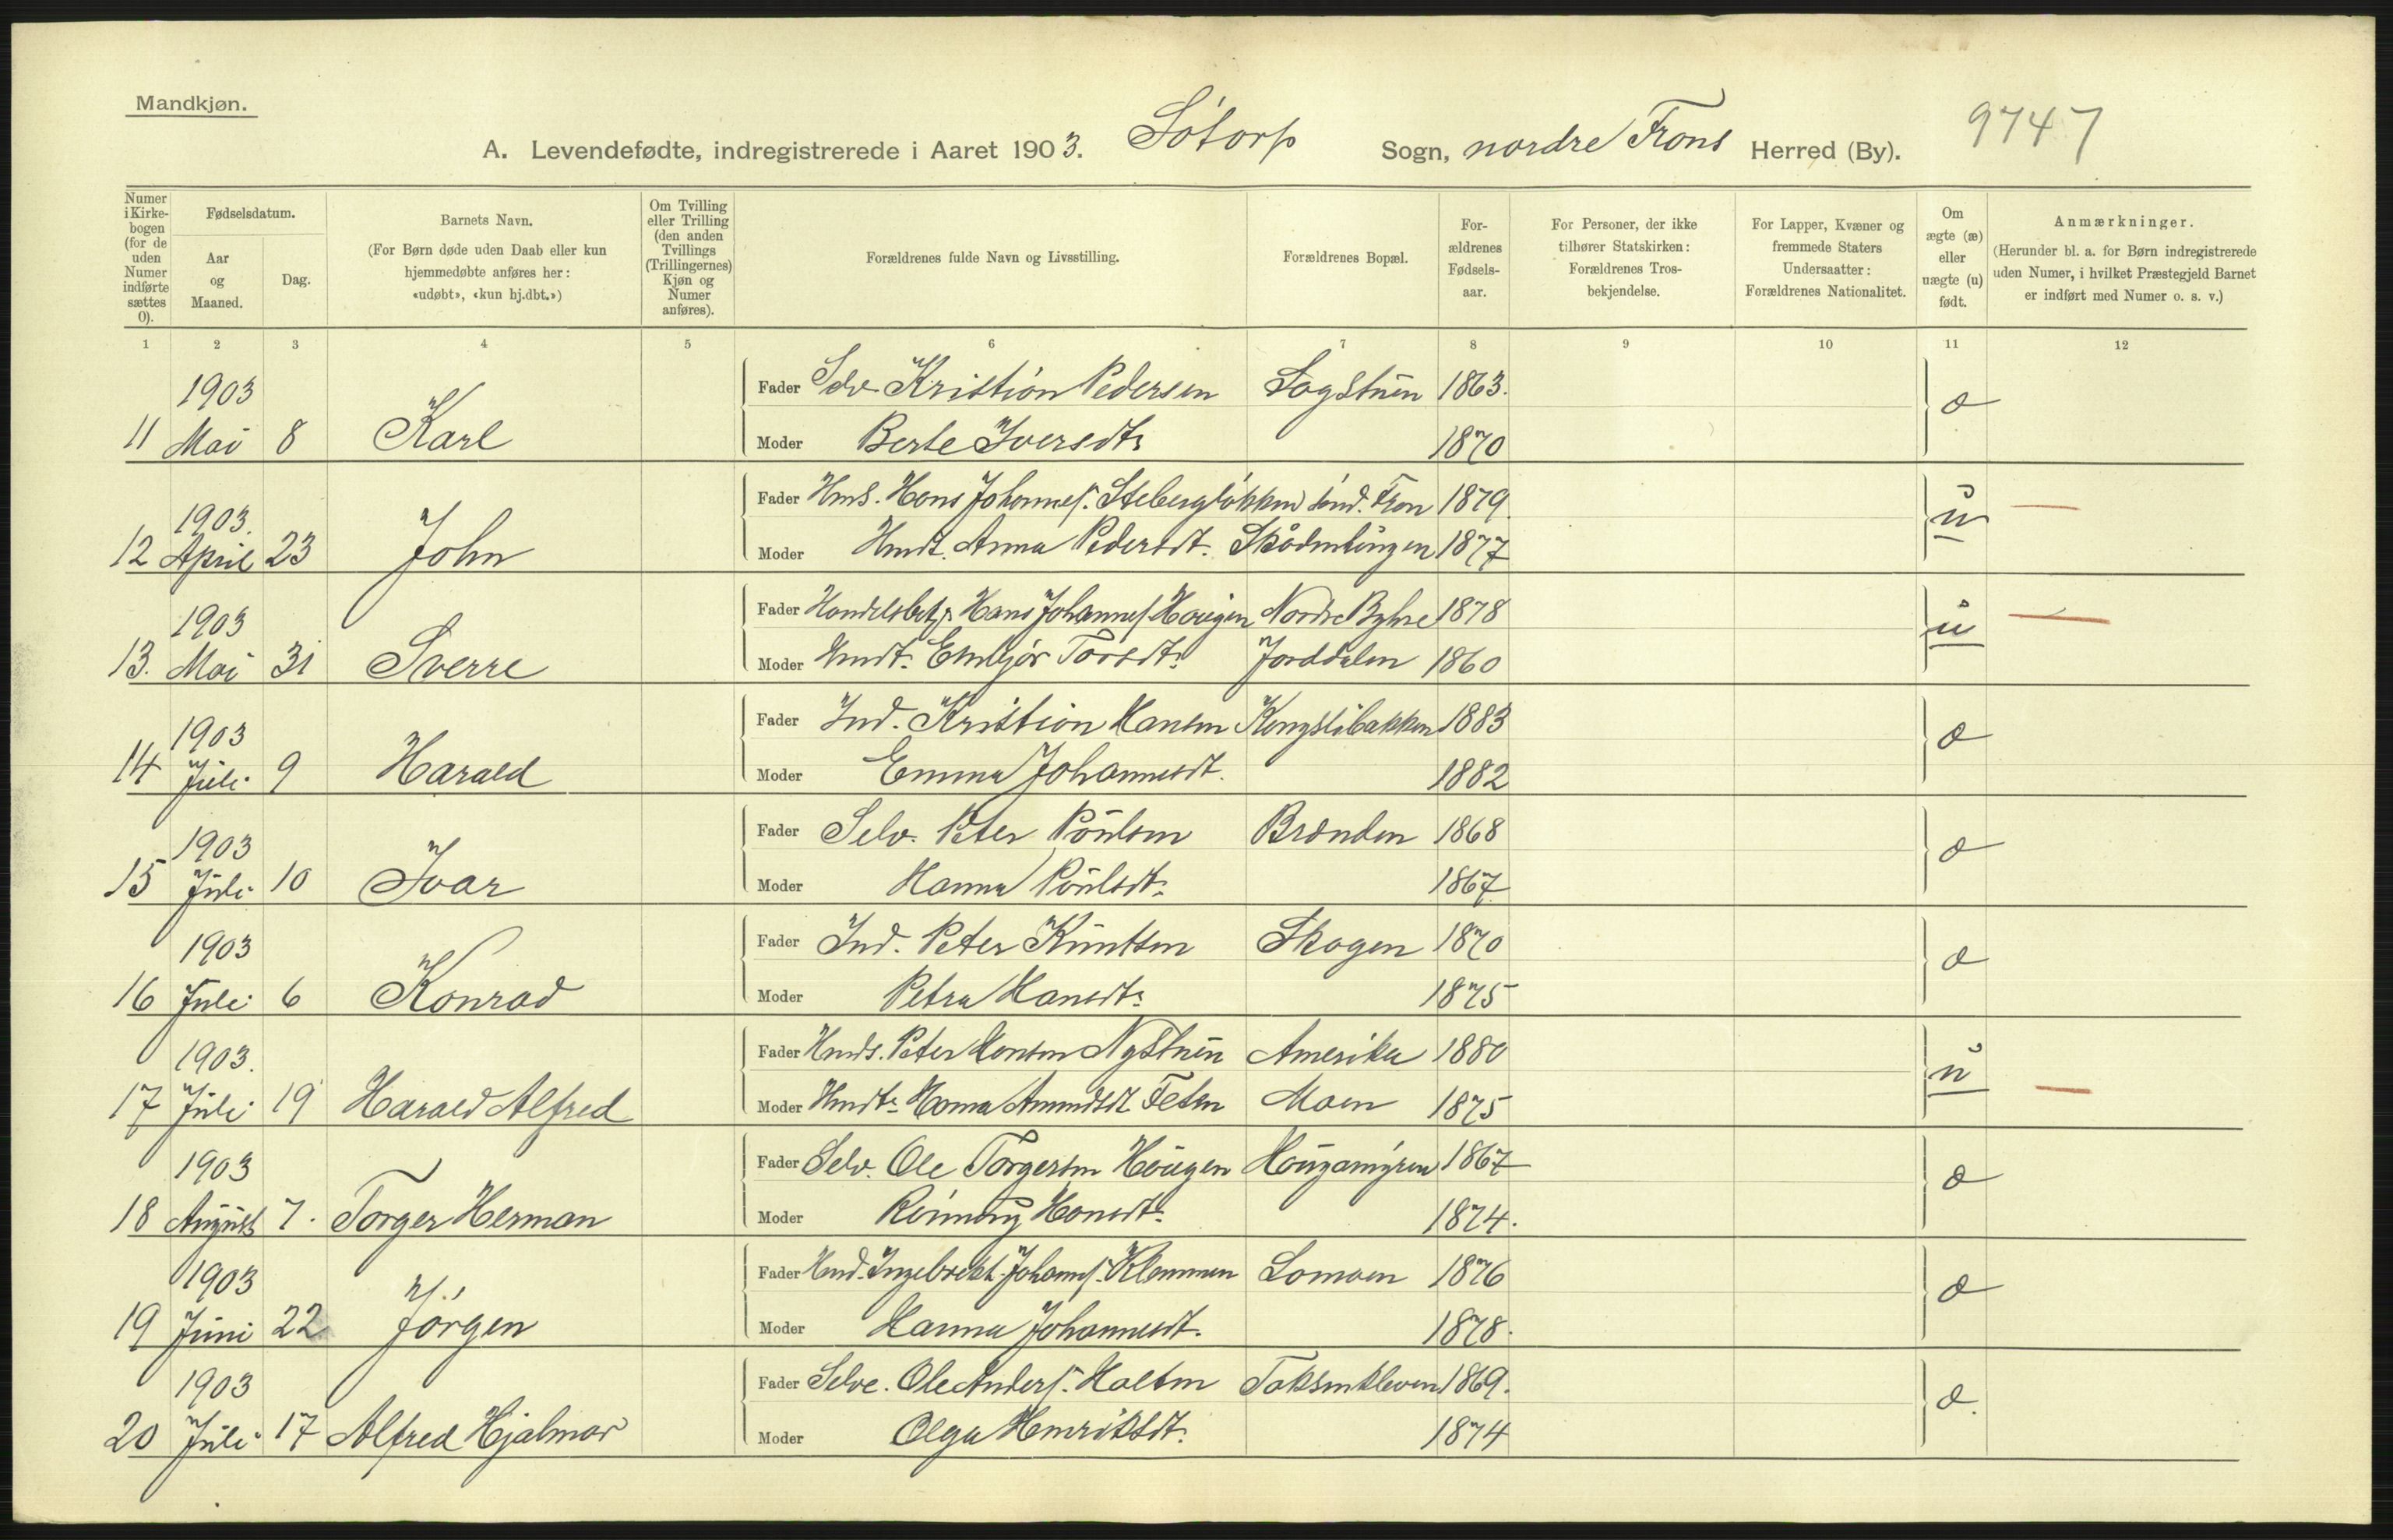 Mandkjøn.
A. Levendefødte, indregistrerede i Aaret 1903. Sótorp Sogn, nordre Frons Herred (By). 9747
Numer i Kirkebogen (for de uden Numer indførte sættes 0).
Fødselsdatum.
Aar og Maaned.
Dag.
Barnets Navn.
(For Børn døde uden Daab eller kun hjemmedøbte anføres her: «udøbt», «kun hj.dbt.»)
Om Tvilling eller Trilling (den anden Tvillings (Trillingernes) Kjøn og Numer anføres).
Forældrenes fulde Navn og Livsstilling.
Forældrenes Bopæl.
Forældrenes Fødselsaar.
For Personer, der ikke tilhører Statskirken: Forældrenes Trosbekjendelse.
For Lapper, Kvæner og fremmede Staters Undersaatter: Forældrenes Nationalitet.
Om ægte (æ) eller uægte (u) født.
Anmærkninger.
(Herunder bl. a. for Børn indregistrerede uden Numer, i hvilket Præstegjeld Barnet er indført med Numer o. s. v.)
1 2 3 4 5 6 7 8 9 10 11 12
1903 Fader Selv Kristian Pedersen Sagstuen 1863. æ
11 Mai 8 Karl Moder Berte Iversdtr 1870
1903. Fader Hans Johannes. sønd. Fron 1879. u
12 April 23 John Moder Anna Pedersdt. 1877
1903 Fader Hans Johannes. Haugen Nordre Byhre 1878 u
13. Mai 31 Sverre Moder Jorddalen 1860
1903 Fader Ind. Kristian Hansen Kongslibakken 1883 æ
14 Juli 9 Harald Moder Emma Johannesdt. 1882
1903 Fader Selv. Peter Poulsen Brænden 1868 æ
15 Juli 10 Ivar Moder Hanna Poulsdt. 1867
1903 Fader Ind. Peter Knutsen Skogen 1870 æ
16 Juli 6 Konrad Moder Petra Hansdtr. 1875
1903. Fader Peter Hansen Nystuen Amerika 1880 u
17 Juli 19 Harald Alfred Moder Hanna Amundsdt Moen 1875
1903 Fader Selv. Ole Torgersen Haugen Haugamyren 1867 æ
18 August 7. Torger Herman Moder Rønnaug Hansdt. 1874.
1903 Fader Ingebrekt Johans. Klemmen Lomoen 1876 æ
19 Juni 22 Jórgen Moder Hanna Johannesdt. 1878.
1903 Fader Selve. Ole Anders. 1869. æ.
20 Juli 17 Alfred Hjalmar Moder Olga Henriksdt. 1874